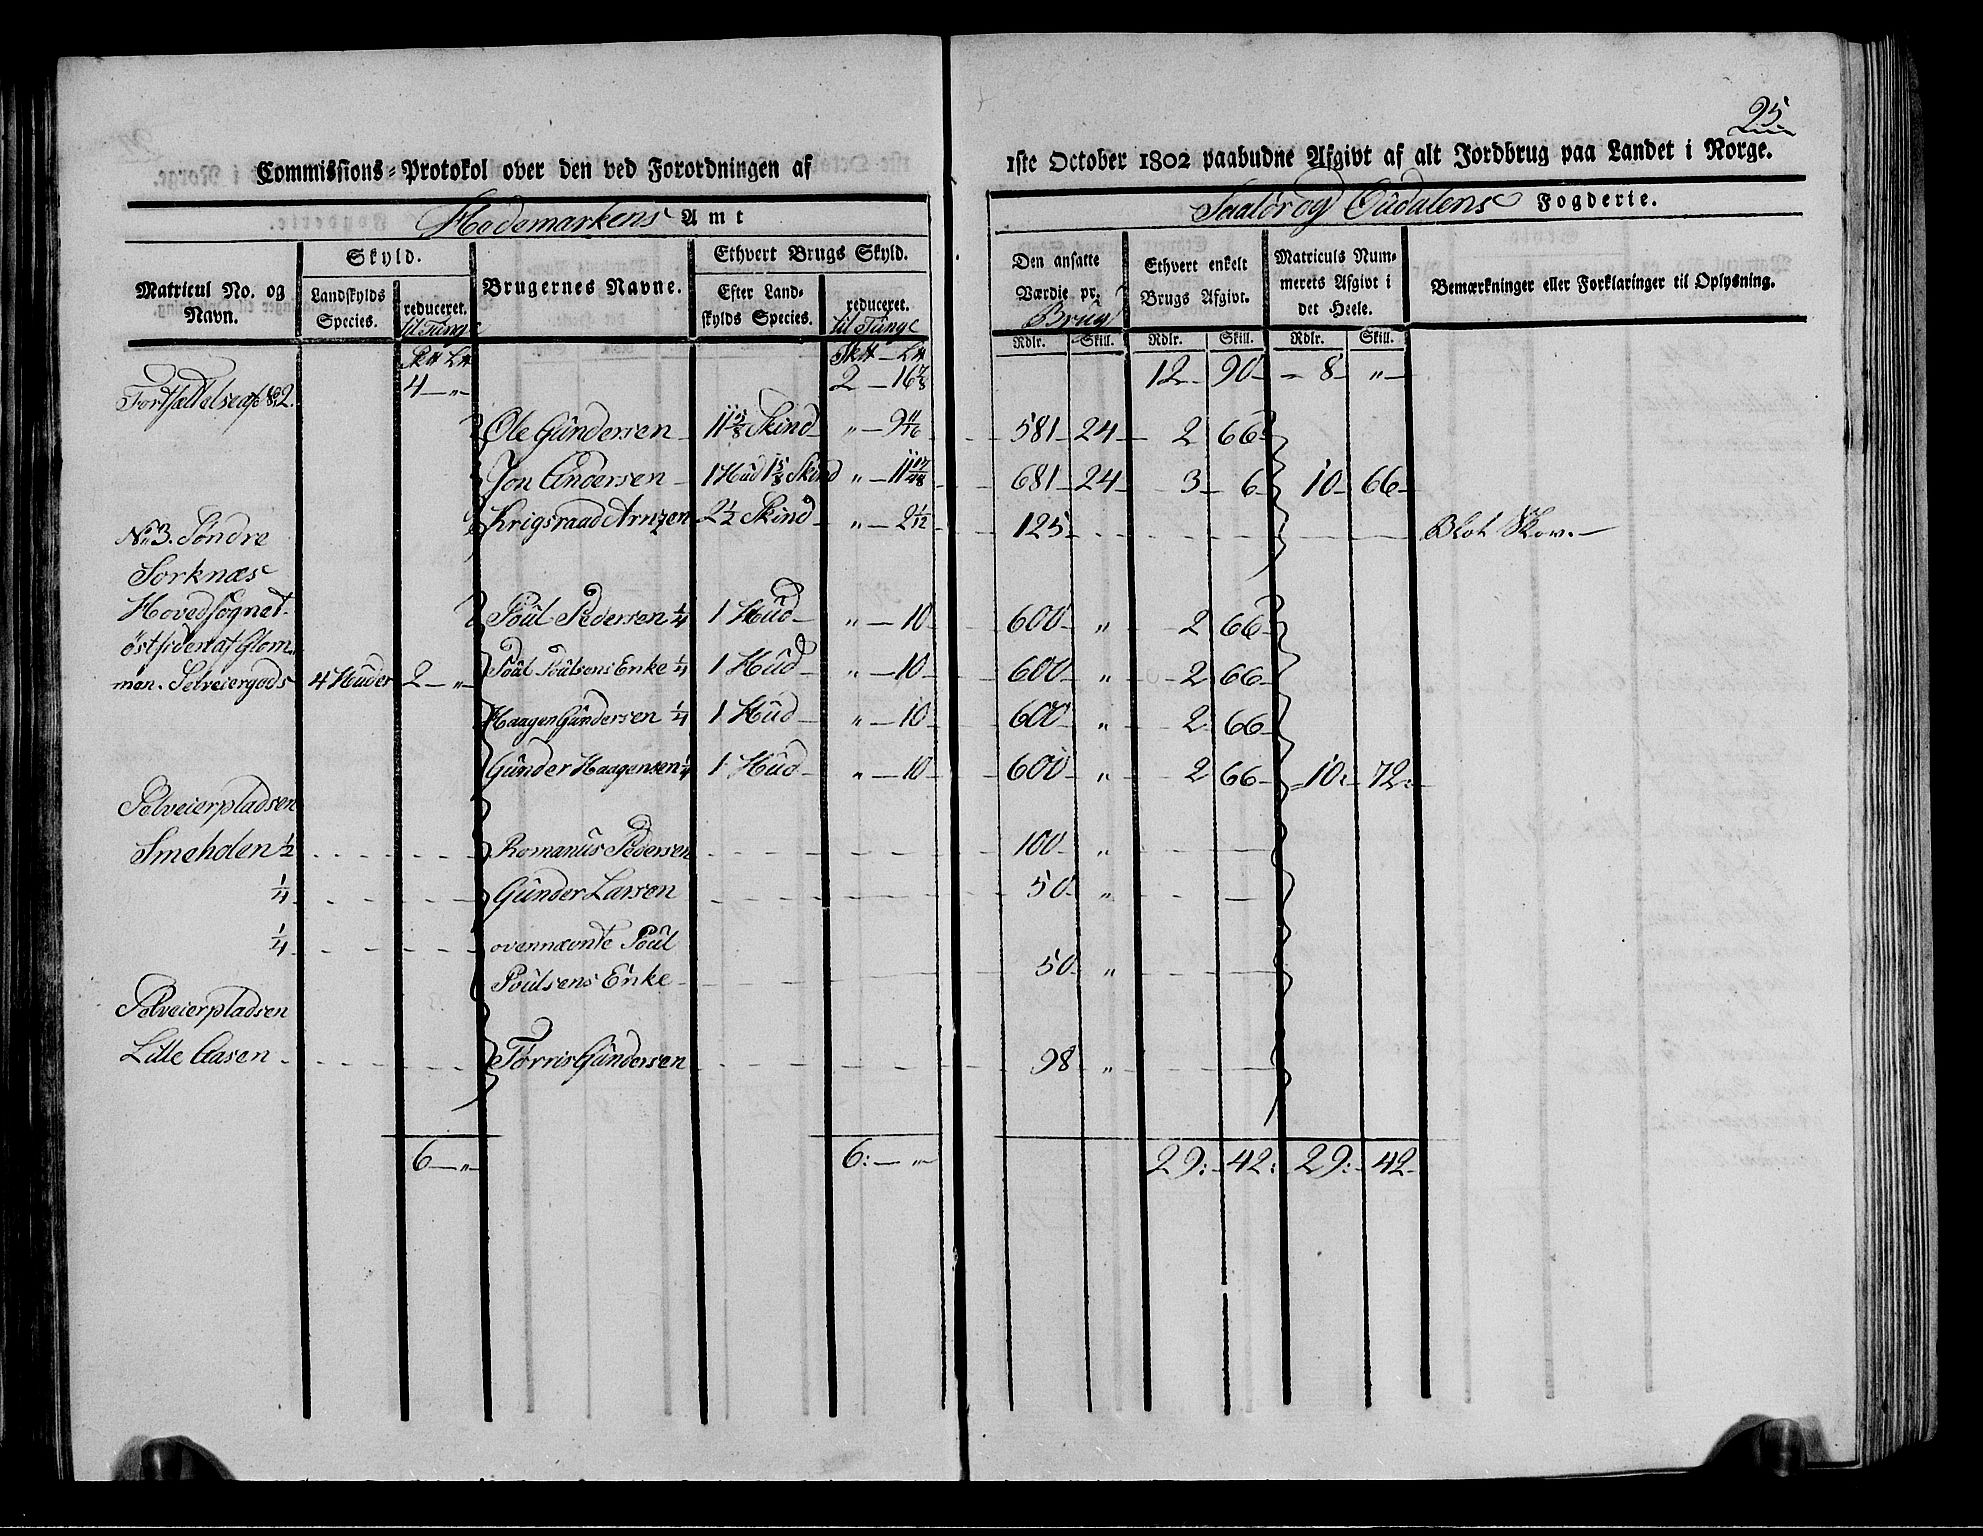 25
Commissions-Protokol over den ved Forordningen af 1ste October 1802 paabudne Afgivt af alt Jordbrug paa Landet i Norge.
Hedemarkens Amt Saalør og Oudalens Fogderie.
Matricul No. og Navn.
Skyld.
Landskylds Species.
reduceret til Tunge
Brugernes Navne.
Ethvert Brugs Skyld.
Efter Landskylds Species.
reduceret til Tunge
Den ansatte Værdie pr. Brug
Ethvert enkelt Brugs Afgivt.
Matriculs Nummerets Afgivt i det Heele.
Bemærkninger eller Forklaringer til Oplysning.
Rdlr. Skill. Rdlr. Skill. Rdlr. Skill.
Fortsættelse af No 2. 4 — „ 2 — 16 7/8 12 90 8 „
Ole Gundersen 11 5/8 Skind „ — 9 11/16 581 24 2 66
Jon Andersen 1 Hud 1 5/8 Skind „ — 11 17/48 681 24 3 6 10 66
Krigsraad Arnzen 2 1/2 Skind „ — 2 1/12 125 Blot Skov.
No 3. Søndre
Sorknæs
Hovedsognet Poul Pedersen 1/4 1 Hud „ — 10 600 „ 2 66
østsiden af Glom
men. Selveiergods 4 Huder 2 — „ Poul Poulsens Enke 1/4 1 Hud „ — 10 600 „ 2 66
Haagen Gundersen 1/4 1 Hud „ — 10 600 „ 2 66
Gunder Haagensen 1/4 1 Hud „ — 10 600 „ 2 66 10 72
Selveierpladsen
Smeholen 1/2 Romanus Pedersen 100 „
1/4 Gunder Larsen 50 „
1/4 ovennævnte Poul
Poulsens Enke 50 „
Selveierpladsen
Lille Aasen Torris Gundersen 98 „
6 — „ 6: — „ 29: 42: 29: 42